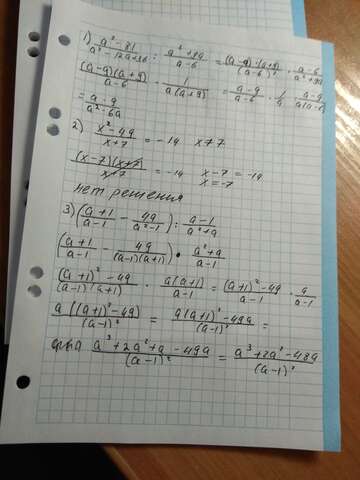 1) (a² - 81)/(a² - 12a + 36) : (a² + 9a)/(a - 6) = ((a - 9)·(a + 9))/(a - 6)² · (a - 6)/(a² + 9a)
((a - 9)(a + 9))/(a - 6) · 1/(a(a + 9)) = (a - 9)/(a - 6) · 1/a · (a - 9)/(a(a - 6))
= (a - 9)/(a² - 6a)
2) (x² - 49)/(x + 7) = -14 x ≠ 7
((x - 7)(x + 7))/(x + 7) = -14 x - 7 = -14
x = -7
нет решения
3) ((a + 1)/(a - 1) - 49/(a² - 1)) : (a - 1)/(a² + a)
((a + 1)/(a - 1) - 49/((a - 1)(a + 1))) · (a² + a)/(a - 1)
((a + 1)² - 49)/((a - 1)(a + 1)) · (a(a + 1))/(a - 1) = ((a + 1)² - 49)/(a - 1) · a/(a - 1)
(a((a + 1)² - 49))/(a - 1)² = (a(a + 1)² - 49a)/(a - 1)² =
(a³ + 2a² + a - 49a)/(a - 1)² = (a³ + 2a² - 48a)/(a - 1)²